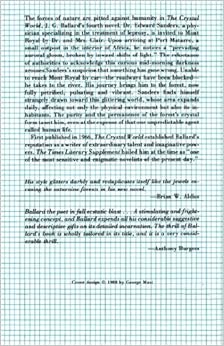 The forces of nature are pitted against humanity in The Crystal
World, J. G. Ballard's fourth novel. Dr. Edward Sanders, a phy-
sician specializing in the treatment of leprosy, is invited to Mont
Royal by Dr. and Mrs. Clair. Upon arriving at Port Matarre, a
small outpost in the interior of Africa, he notices a "pervading
auroral gloom, broken by inward shifts of light." The reluctance
of authorities to acknowledge this curious mid-morning darkness
arouses Sanders's suspicion that something has gone wrong. Unable
to reach Mont Royal by car—the roadways have been blocked—
he takes to the river. His journey brings him to the forest, now
fully petrified; pulsating and vibrant. Sanders finds himself
strangely drawn toward this glittering world, whose area expands
daily, affecting not only the physical environment but also its in-
habitants. The purity and the permanence of the forest's crystal
form tempt him, even at the expense of that one unpredictable agent
called human life.
First published in 1966, The Crystal World established Ballard's
reputation as a writer of extraordinary talent and imaginative pow-
ers. The Times Literary Supplement hailed him at the time as "one
of the most sensitive and enigmatic novelists of the present day."
His style glitters darkly and reduplicates itself like the jewels en-
casing the notorious forests in his new novel.
—Brian W. Aldiss
Ballard the poet in full ecstatic blast . . . A stimulating and fright-
ening concept, and Ballard expends all his considerable suggestive
and descriptive gifts on its detailed incarnation. The thrill of Bal-
lard's book is wholly tailored in its title, and it is a very consid-
erable thrill.
—Anthony Burgess
Cover design © 1988 by George Masi